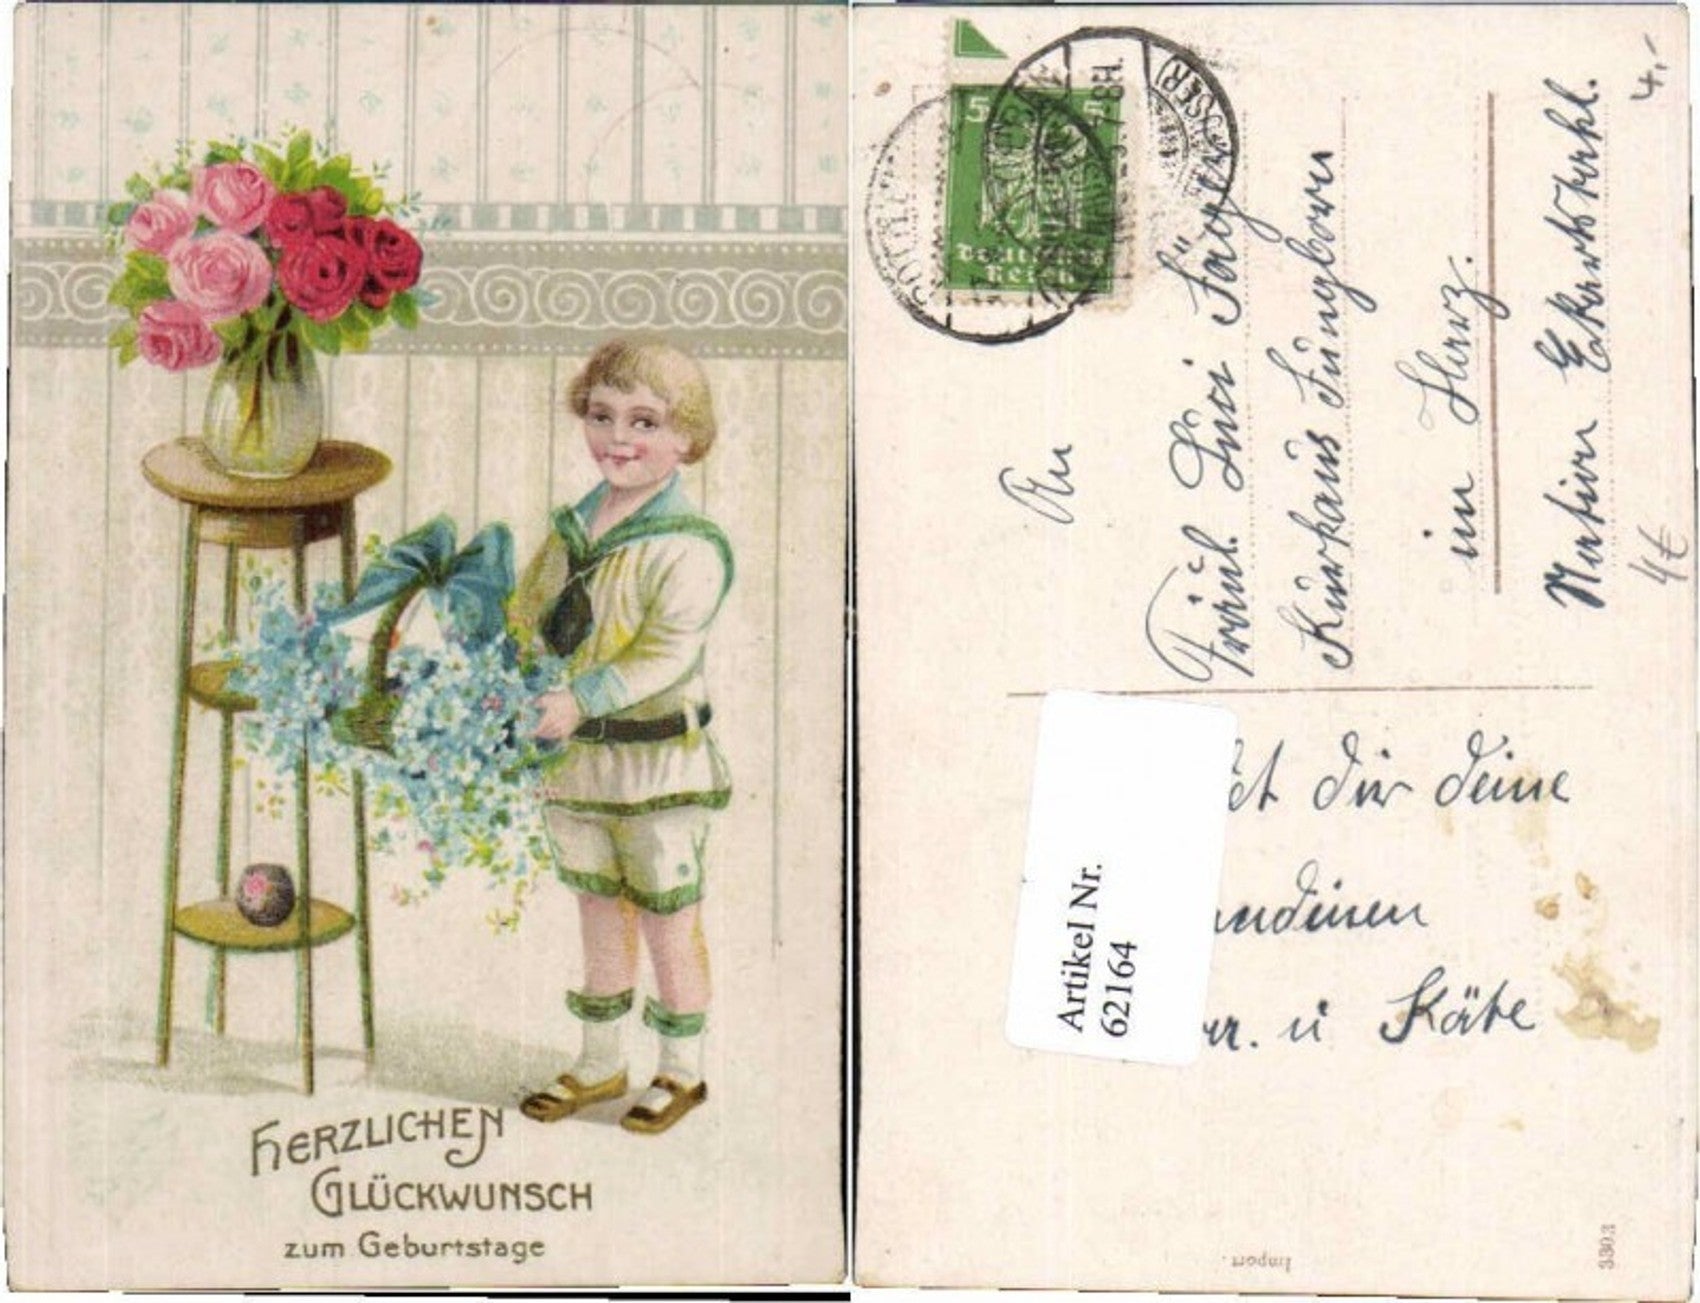 HERZLICHEN
GLÜCKWUNSCH
zum Geburtstage
5 5
Deutsches
Reich
An
Fräul. Luci Jäger
Kurhaus Jungborn
im Harz.
Station Eckertal.
4.-
4€
Artikel Nr.
62164
dir deine
u Käte
Import.
3303